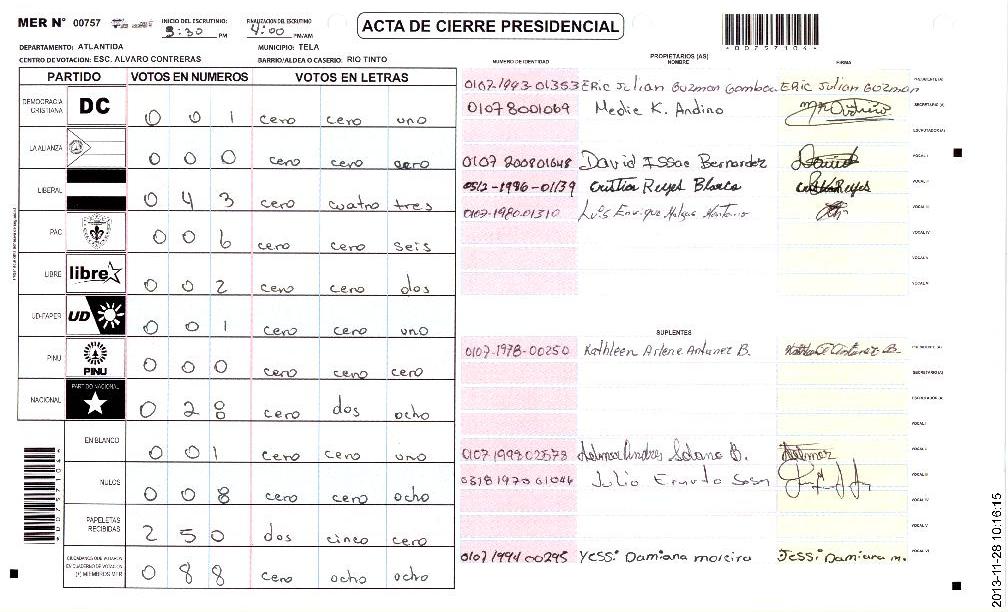 MER N° 00757 INICIO DEL ESCRUTINIO 3:30 PM FINALIZACION DEL ESCRUTINIO 4:00 PM/AM
ACTA DE CIERRE PRESIDENCIAL
DEPARTAMENTO: ATLANTIDA MUNICIPIO: TELA
CENTRO DE VOTACION: ESC. ALVARO CONTRERAS BARRIO/ALDEA O CASERIO: RIO TINTO
PARTIDO VOTOS EN NUMEROS VOTOS EN LETRAS
DEMOCRACIA CRISTIANA DC 0 0 1 cero cero uno
LA ALIANZA 0 0 0 cero cero cero
LIBERAL 0 4 3 cero cuatro tres
PAC 0 0 6 cero cero seis
LIBRE libre 0 0 2 cero cero dos
UD-FAPER UD 0 0 1 cero cero uno
PINU PINU 0 0 0 cero cero cero
NACIONAL PARTIDO NACIONAL 0 2 8 cero dos ocho
EN BLANCO 0 0 1 cero cero uno
NULOS 0 0 8 cero cero ocho
PAPELETAS RECIBIDAS 2 5 0 dos cinco cero
CIUDADANOS QUE VOTARON EN CUADERNO DE VOTACION (+) MIEMBROS MER 0 8 8 cero ocho ocho
PROPIETARIOS (AS)
NUMERO DE IDENTIDAD NOMBRE FIRMA
0107-1993-01353 Eric Julian Guzman Gamboa Eric Julian Guzman PRESIDENTE (A)
01078001069 Medie K. Andino SECRETARIO (A)
ESCRUTADOR (A)
0107 200801648 David Issac Bernardez David VOCAL I
0512-1996-01139 Cristian Reyes Blanco Reyes VOCAL II
0107-1980-01310 Luis Enrique VOCAL III
VOCAL IV
VOCAL V
VOCAL VI
SUPLENTES
0107-1978-00250 Kathleen Arlene Antunez B. PRESIDENTE (A)
SECRETARIO (A)
ESCRUTADOR (A)
VOCAL I
0107 199802578 Solano B. VOCAL II
0318 1970 01046 Julio Ernesto Sosa VOCAL III
VOCAL IV
VOCAL V
0107 1994 00295 Yessi Damiana moreira Jessi Damiana m. VOCAL VI
00757104
2013-11-28 10:16:15